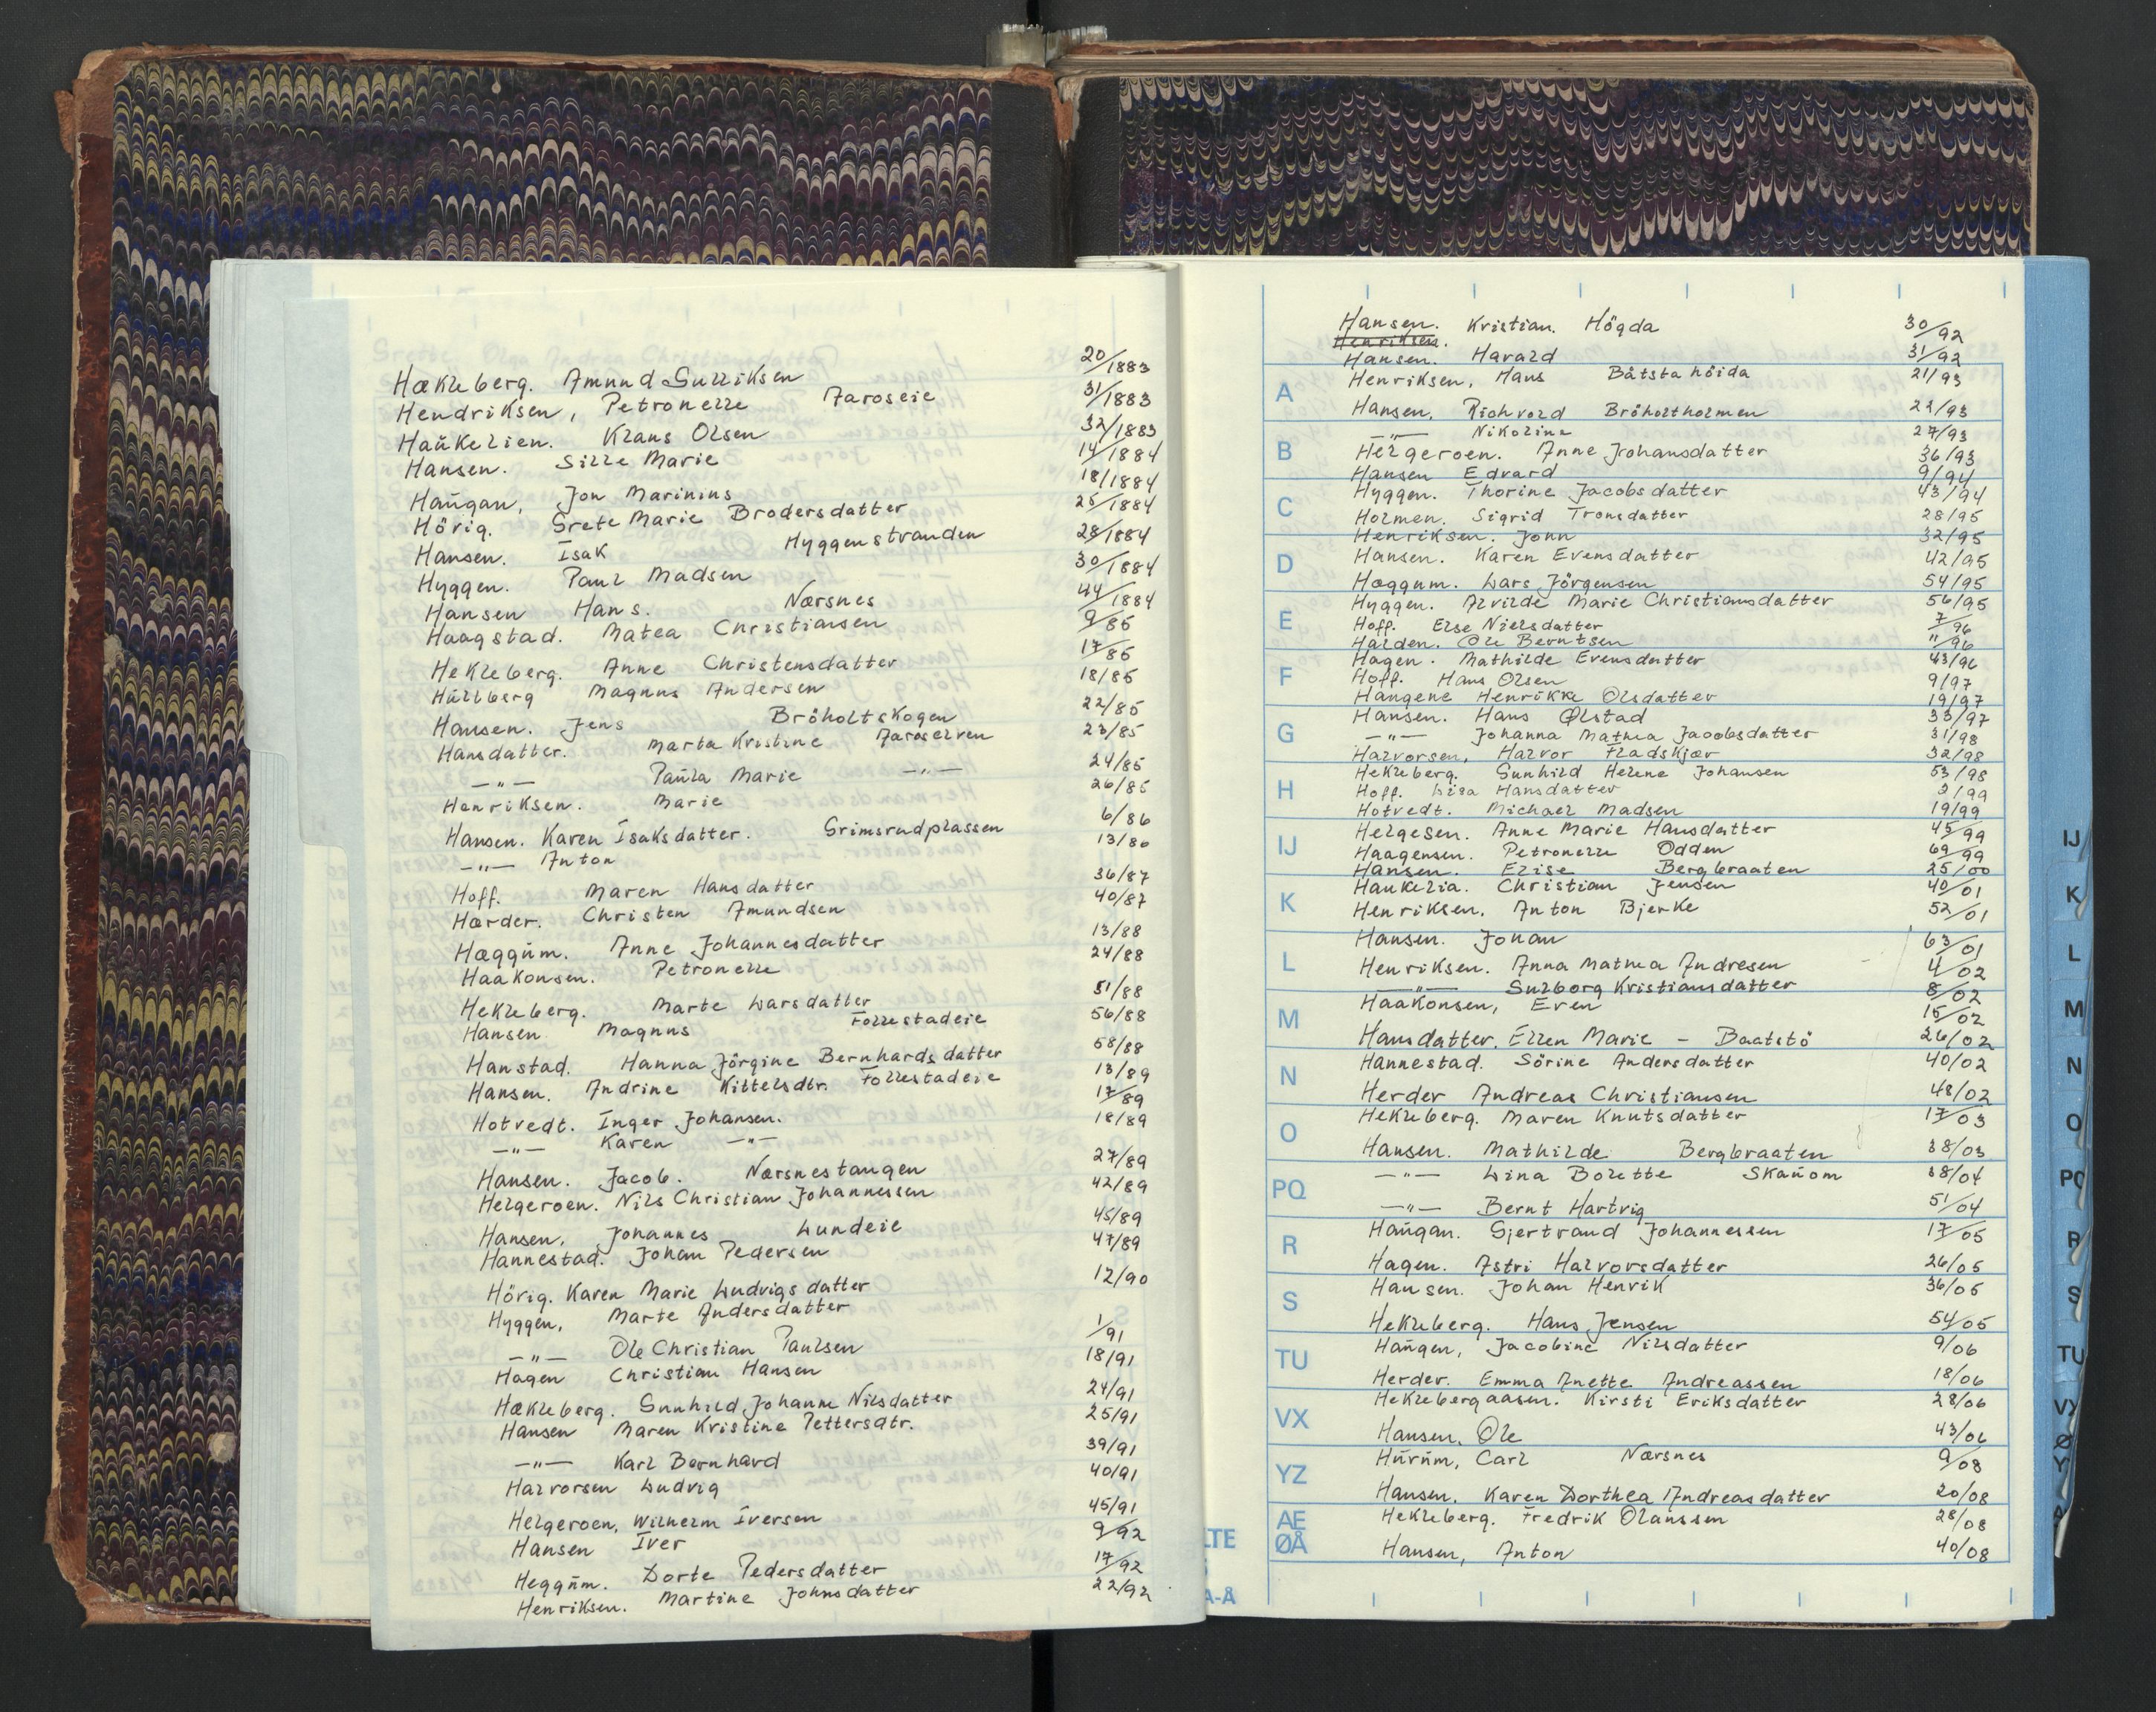 Hækleberg. Amund Gulliksen 20/1883
Hendriksen, Petronelle Aaroseie 31/1883
Haŭkelien. Klaus Olsen 32/1883
Hansen. Sille Marie 14/1884
Haŭgan, Jon Marinius 18/1884
Hörig. Grete Marie Brodersdatter 25/1884
Hansen. Isak Hyggenstranden 28/1884
Hyggen. Paul Madsen 30/1884
Hansen Hans. Nærsnes 44/1884
Haagstad. Matea Christiansen 9/85
Hekleberg. Anne Christensdatter 17/85
Hŭllberg Magnus Andersen 18/85
Hansen. Jens Bröholtskogen 22/85
Hansdatter. Marta Kristine Aaroselven 23/85
—"— Paŭla Marie —"— 24/85
Henriksen. Marie 26/85
Hansen. Karen Isaksdatter. Grimsrudplassen 6/86
—"— Anton 13/86
Hoff. Maren Hansdatter 36/87
Hærder. Christen Amundsen 40/87
Hæggŭm. Anne Johannesdatter 13/88
Haakonsen. Petronelle 24/88
Hekleberg. Marte Larsdatter 51/88
Hansen. Magnus Follestadeie 56/88
Hanstad. Hanna Jörgine Bernhardsdatter 58/88
Hansen. Andrine Kittelsdtr. Follestadeie 13/89
Hotvedt. Inger Johansen. 17/89
—"— Karen —"— 18/89
Hansen. Jacob. Nærsnestangen 27/89
Helgeroen. Nils Christian Johannessen 42/89
Hansen. Johannes Lundeie 45/89
Hannestad. Johan Pedersen 47/89
Hörig. Karen Marie Ludvigsdatter 12/90
Hyggen, Marte Andersdatter 1/91
—"— Ole Christian Paulsen 18/91
Hagen Christian Hansen
Hækleberg. Gunhild Johanne Nilsdatter 24/91
Hansen Maren Kristine Pettersdtr. 25/91
—"— Karl Bernhard 39/91
Halvorsen Ludvig 40/91
Helgeroen, Wilhelm Iversen 45/91
Hansen Iver 9/92
Heggŭm. Dorte Pedersdatter 17/92
Henriksen. Martine Johnsdatter 22/92
Hansen. Kristian. Högda 30/92
Henriksen.
Hansen. Harald 31/92
A
Henriksen, Hans Båtstahöida 21/93
Hansen, Richvold Bröholtholmen 22/93
—"— Nikoline 27/93
B
Helgeroen. Anne Johansdatter 36/93
Hansen Edvard 9/94
Hyggen. Thorine Jacobsdatter 43/94
C
Holmen. Sigrid Tronsdatter 28/95
Henriksen. John 32/95
D
Hansen. Karen Evensdatter 42/95
Hæggum. Lars Jörgensen 54/95
Hyggen. Alvilde Marie Christiansdatter 56/95
E
Hoff. Else Nielsdatter 7/96
Halden. Ole Berntsen 11/96
Hagen. Mathilde Evensdatter 43/96
F
Hoff. Hans Olsen 9/97
Haugene Henrikke Olsdatter 19/97
Hansen. Hans Ølstad 33/97
G
—"— Johanna Mathea Jacobsdatter 31/98
Halvorsen, Halvor Fladskjær 32/98
Hekleberg. Gunhild Helene Johansen 53/98
H
Hoff. Lisa Hansdatter 3/99
Hotvedt. Michael Madsen 19/99
Helgesen. Anne Marie Hansdatter 45/99
IJ
Haagensen. Petronelle Odden 69/99
Hansen. Elise Bergbraaten 25/00
Haukelia. Christian Jensen 40/01
K
Henriksen, Anton Bjerke 52/01
Hansen. Johan 63/01
L
Henriksen. Anna Mathea Andresen 4/02
—"— Sulborg Kristiansdatter 8/02
M
Haakonsen, Even 15/02
Hansdatter. Ellen Marie - Baatstö 26/02
Hannestad. Sörine Andersdatter 40/02
N
Herder Andreas Christiansen 48/02
Hekleberg. Maren Knutsdatter 17/03
O
Hansen. Mathilde Bergbraaten 38/03
—"— Lina Bolette Skaŭom 38/04
PQ
—"— Bernt Hartvig 51/04
R
Haŭgan. Gjertraud Johannessen 17/05
Hagen. Astri Halvorsdatter 26/05
S
Hansen. Johan Henrik 36/05
Hekleberg. Hans Jensen 54/05
TU
Haŭgen, Jacobine Nilsdatter 9/06
Herder. Emma Anette Andreassen 18/06
Heklebergaasen. Kirsti Eriksdatter 28/06
VX
Hansen, Ole 43/06
Hŭrŭm, Carl Nærsnes 9/08
YZ
Hansen. Karen Dorthea Andreasdatter 20/08
AE
ØÅ
Hekleberg. Fredrik Olaussen 28/08
Hansen, Anton 40/08
LTE
A-Å
IJ
K
L
M
N
O
PQ
R
S
TU